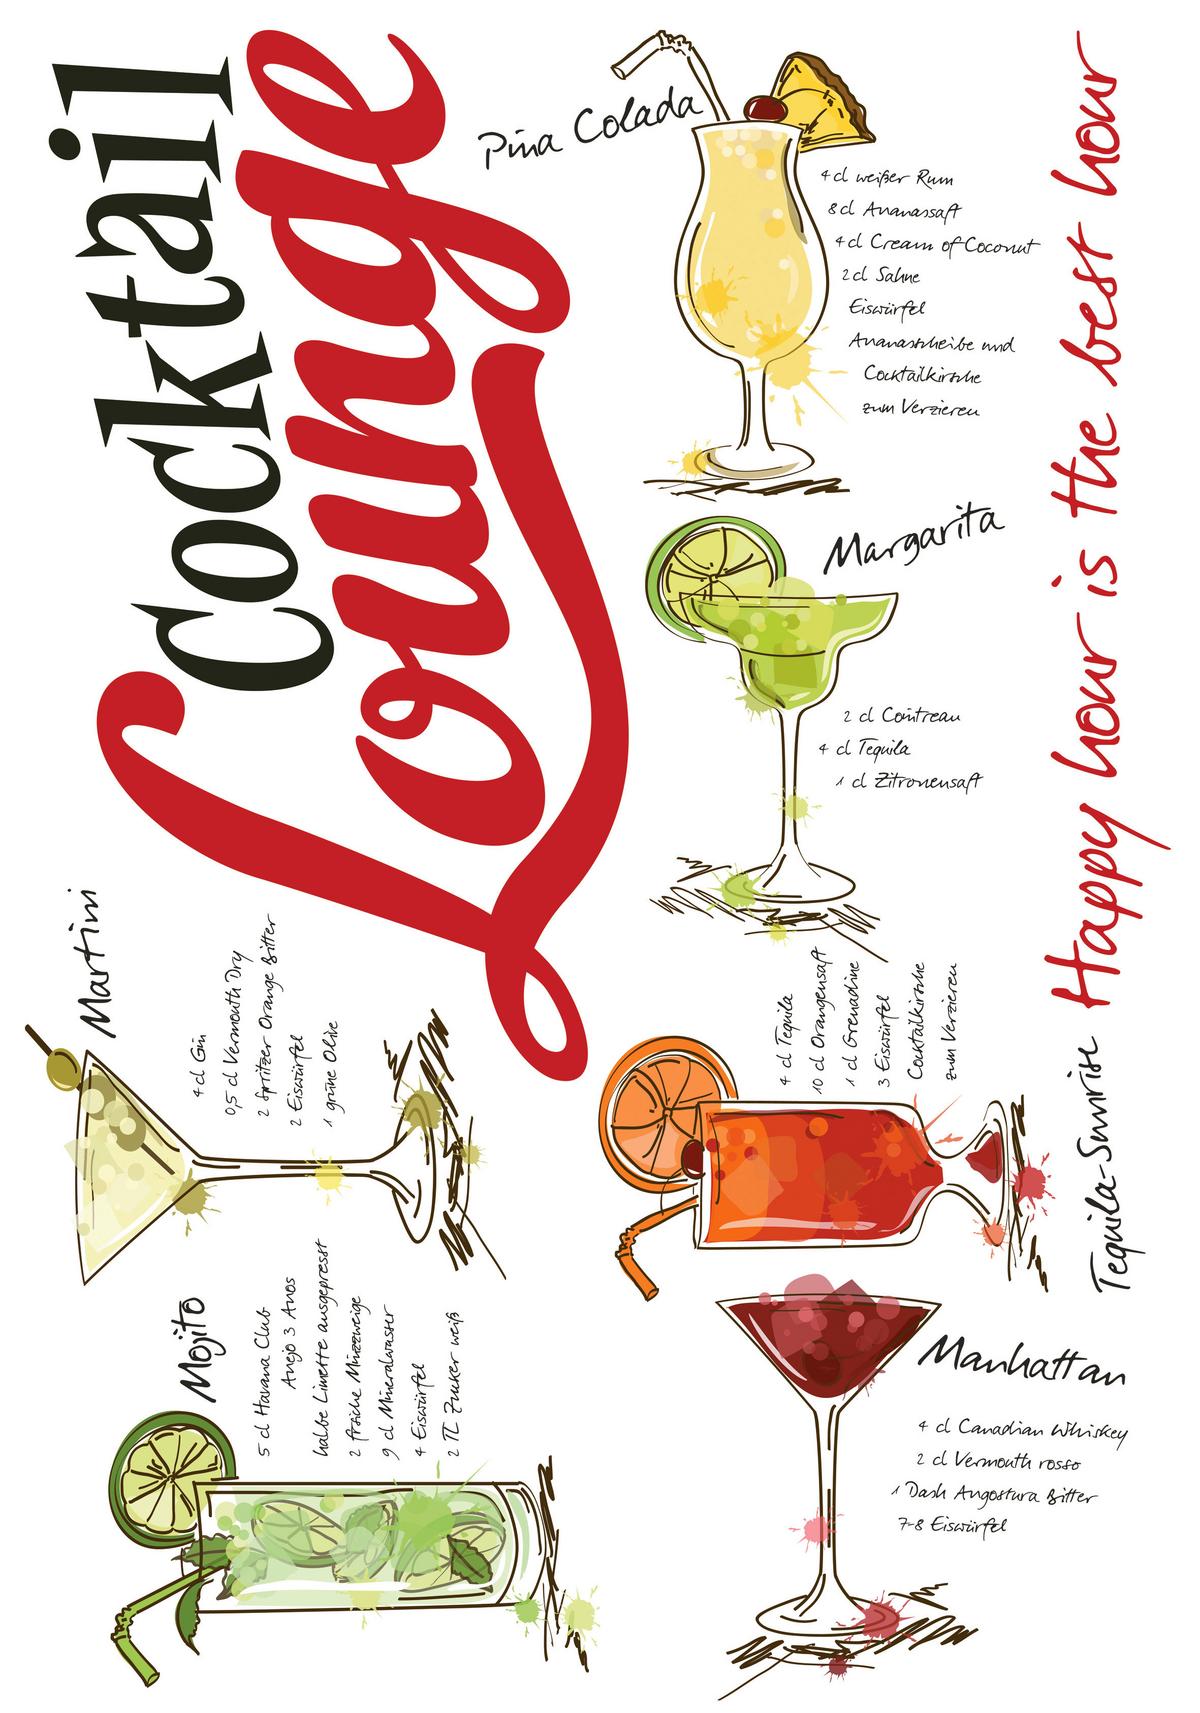 Cocktail
Lounge
Pina Colada
4 cl weißer Rum
8 cl Ananassaft
4 cl Cream of Coconut
2 cl Sahne
Eiswürfel
Ananasscheibe und
Cocktailkirsche
zum Verzieren
Margarita
2 cl Cointreau
4 cl Tequila
1 cl Zitronensaft
Martini
4 cl Gin
0,5 cl Vermouth Dry
2 Spritzer Orange Bitter
2 Eiswürfel
1 grüne Olive
Mojito
5 cl Havana Club
Anejo 3 Anos
halbe Limette ausgepresst
2 frische Minzzweige
9 cl Mineralwasser
4 Eiswürfel
2 TL Zucker weiß
Tequila-Sunrise
4 cl Tequila
10 cl Orangensaft
1 cl Grenadine
3 Eiswürfel
Cocktailkirsche
zum Verzieren
Manhattan
4 cl Canadian Whiskey
2 cl Vermouth rosso
1 Dash Angostura Bitter
7-8 Eiswürfel
Happy hour is the best hour